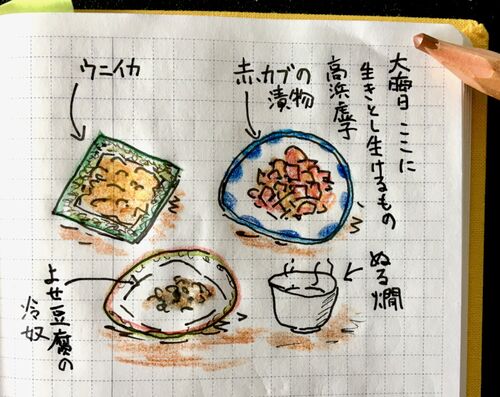 大晦日ここに
生きとし生けるもの
高浜虚子
赤カブの
漬物
ウニイカ
ぬる燗
よせ豆腐の
冷奴